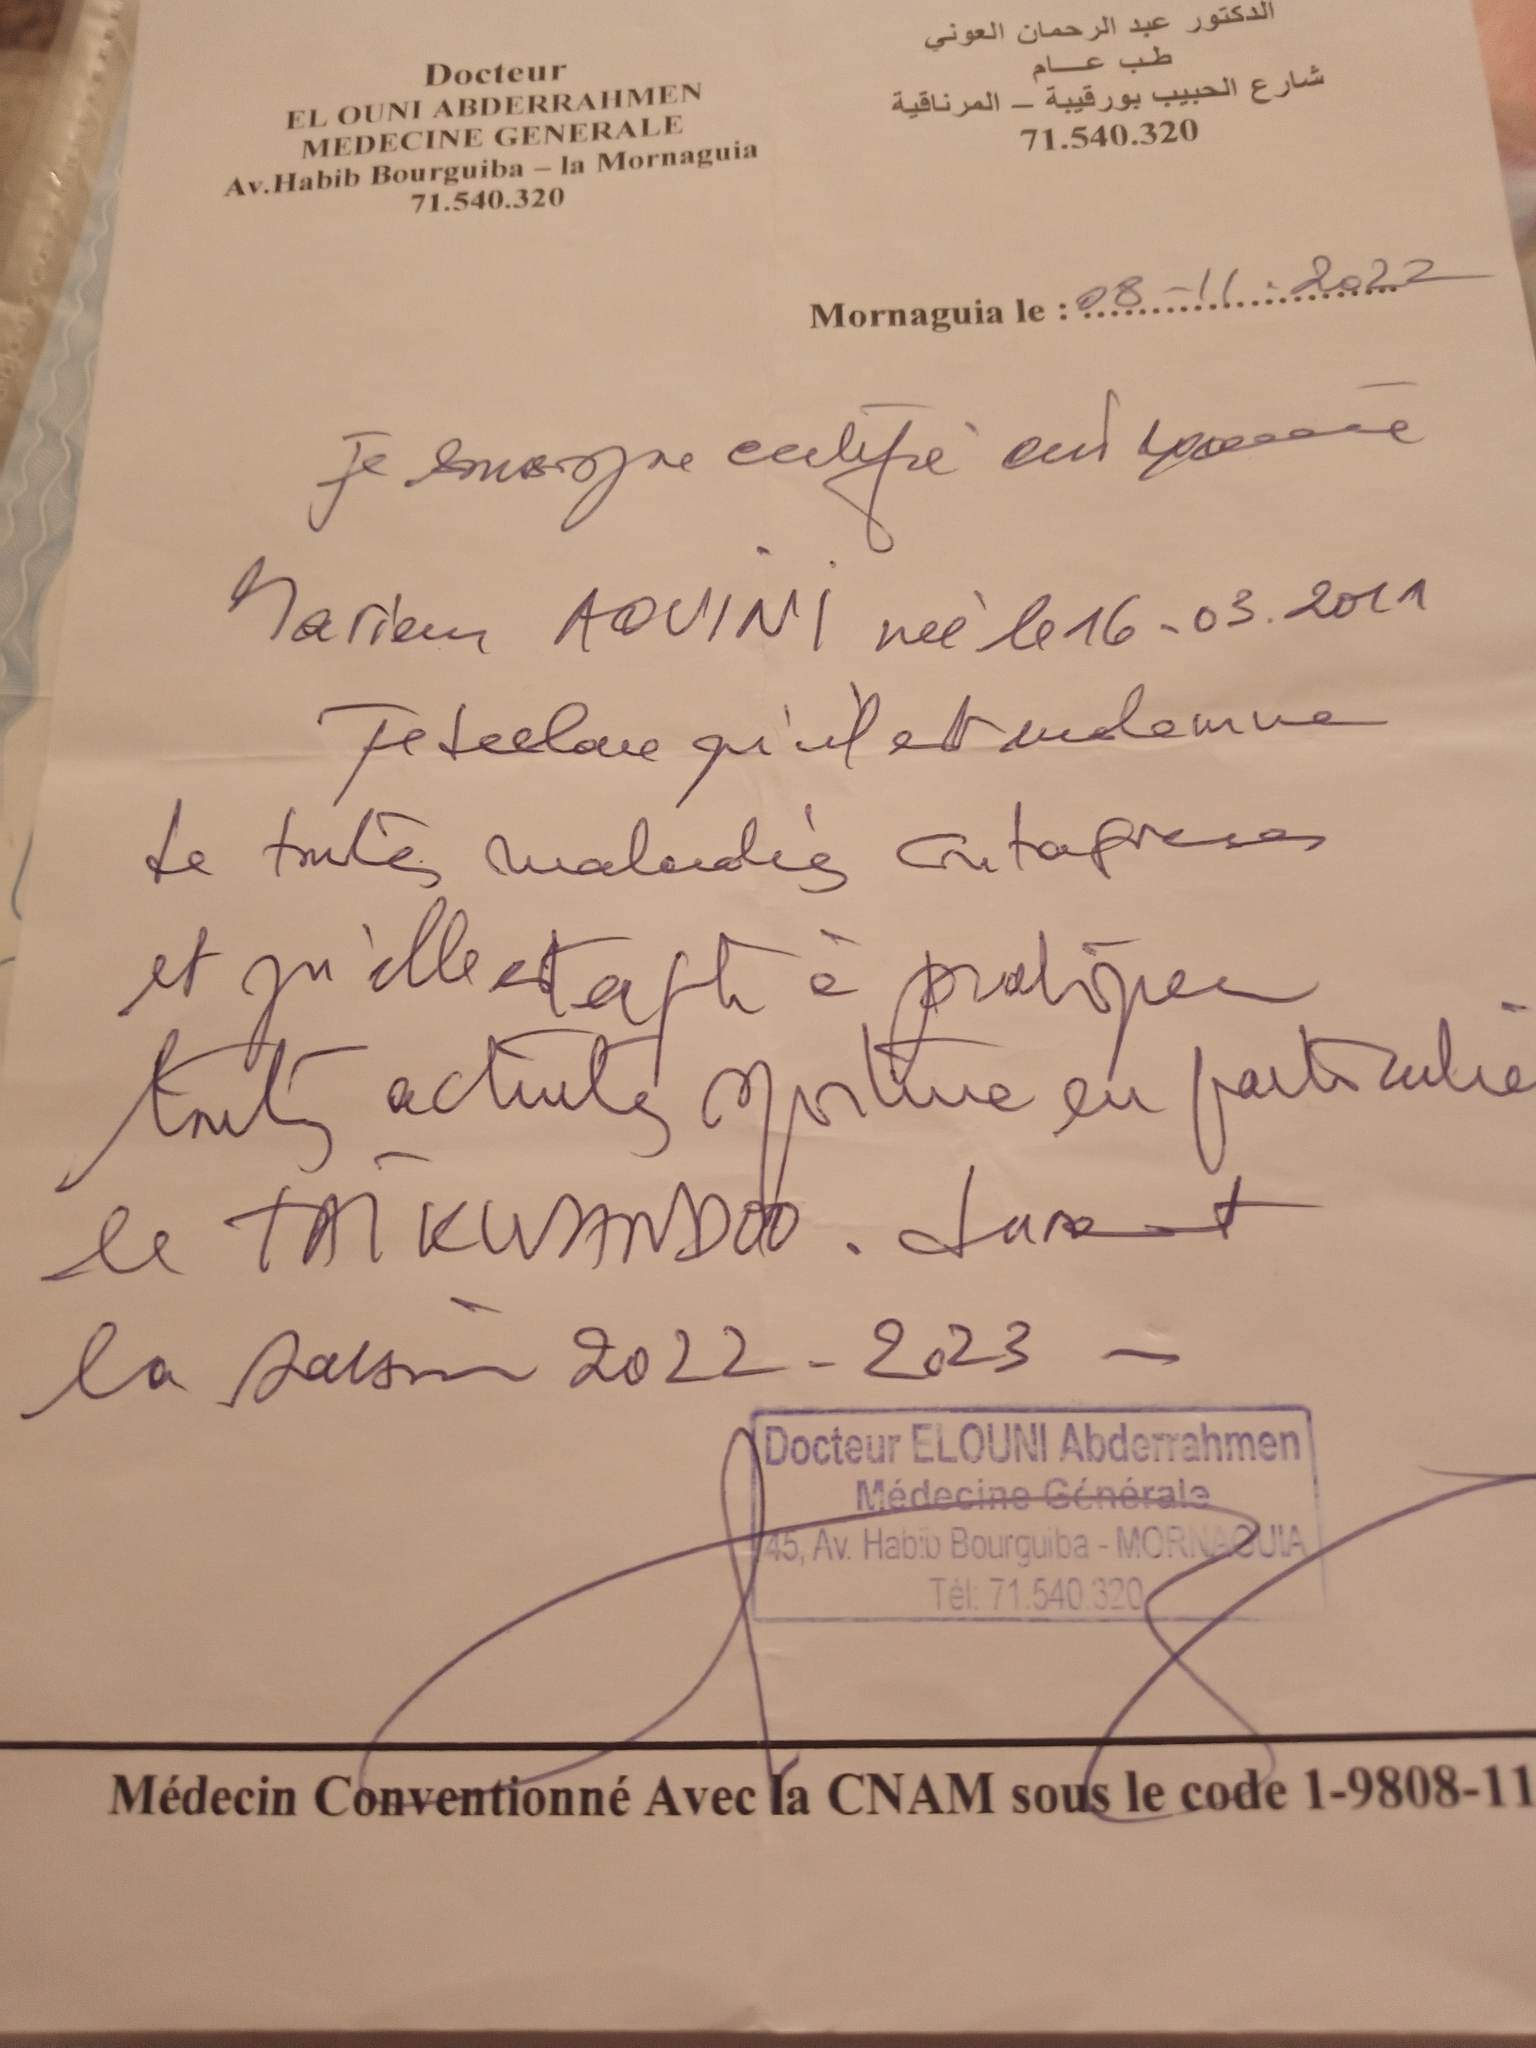 Docteur
EL OUNI ABDERRAHMEN
MEDECINE GENERALE
Av.Habib Bourguiba – la Mornaguia
71.540.320
الدكتور عبد الرحمان العوني
طب عـــام
شارع الحبيب بورقيبة – المرناقية
71.540.320
Mornaguia le : 08-11-2022
Je soussigne certifié avoir
Mariem AOUINI née le 16-03.2011
Je declare qu'il est indemne
de toutes maladies contagieuses
et qu'elle est apte à pratiquer
toutes activités sportive en particulié
le TAÏKWANDOO. durant
la saison 2022-2023 –
Docteur ELOUNI Abderrahmen
Médecine Générale
45, Av. Habib Bourguiba - MORNAGUIA
Tél: 71.540.320
Médecin Conventionné Avec la CNAM sous le code 1-9808-11